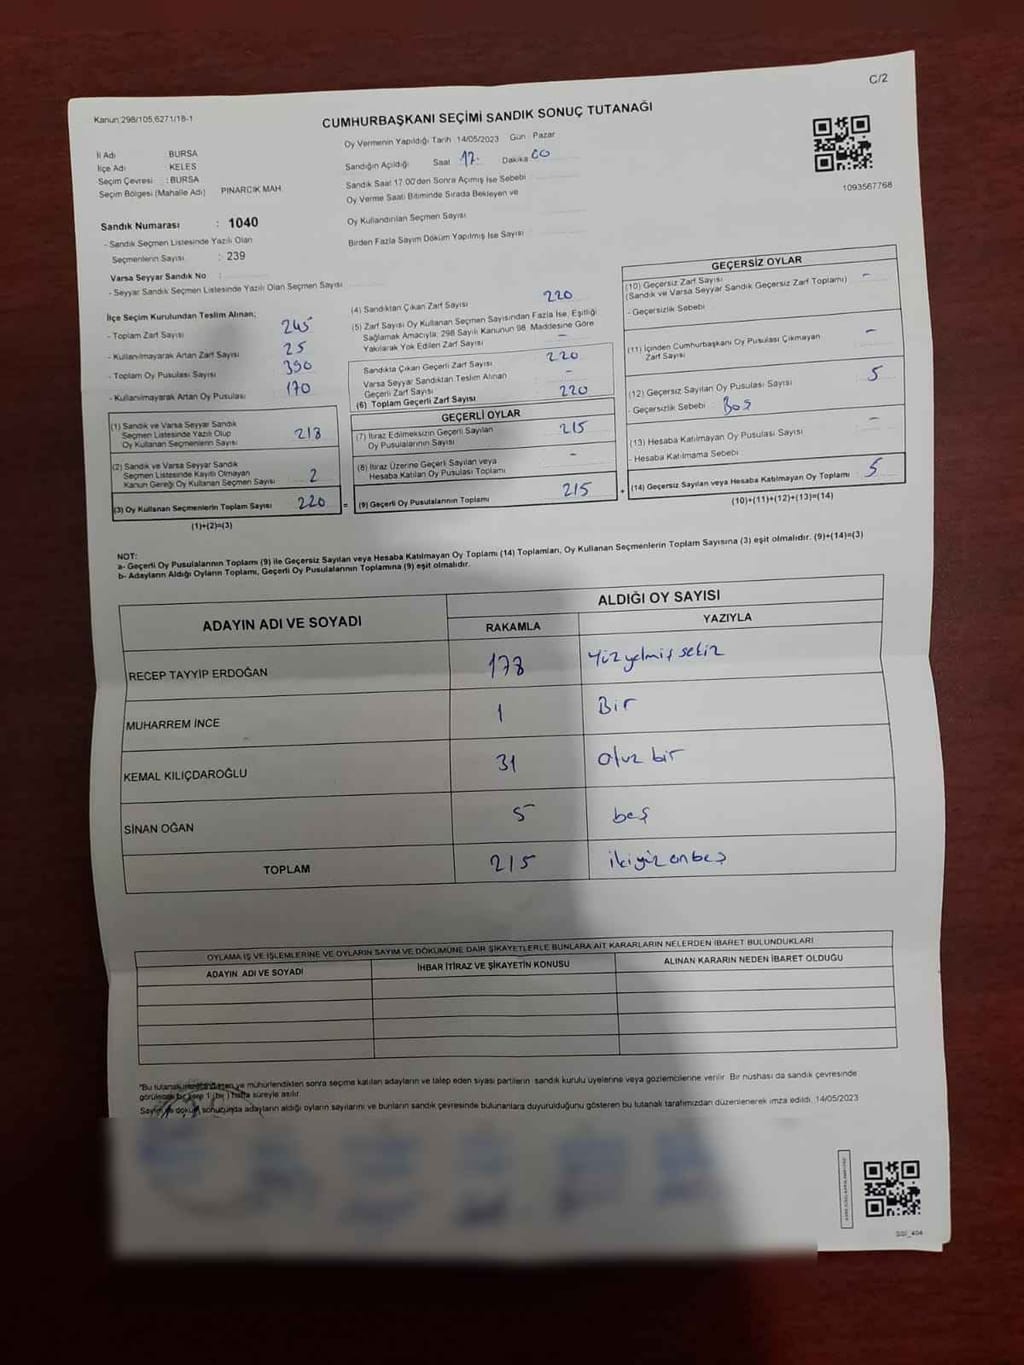 C/2
Kanun:298/105,6271/18-1
CUMHURBAŞKANI SEÇİMİ SANDIK SONUÇ TUTANAĞI
1093567768
İl Adı BURSA
İlçe Adı KELES
Seçim Çevresi : BURSA
Seçim Bölgesi (Mahalle Adı) PINARCIK MAH
Sandık Numarası : 1040
- Sandık Seçmen Listesinde Yazılı Olan
Seçmenlerin Sayısı : 239
Varsa Seyyar Sandık No :
- Seyyar Sandık Seçmen Listesinde Yazılı Olan Seçmen Sayısı
Oy Vermenin Yapıldığı Tarih 14/05/2023 Gün Pazar
Sandığın Açıldığı Saat 17. Dakika 00
Sandık Saat 17 00'den Sonra Açımış İse Sebebi
Oy Verme Saati Bitiminde Sırada Bekleyen ve
Oy Kullandırılan Seçmen Sayısı
Birden Fazla Sayım Döküm Yapılmış İse Sayısı
İlçe Seçim Kurulundan Teslim Alınan;
- Toplam Zarf Sayısı 245
- Kullanılmayarak Artan Zarf Sayısı 25
- Toplam Oy Pusulası Sayısı 390
- Kullanılmayarak Artan Oy Pusulası 170
(1) Sandık ve Varsa Seyyar Sandık
Seçmen Listesinde Yazılı Olup
Oy Kullanan Seçmenlerin Sayısı 218
(2) Sandık ve Varsa Seyyar Sandık
Seçmen Listesinde Kayıtlı Olmayan
Kanun Gereği Oy Kullanan Seçmen Sayısı 2
(3) Oy Kullanan Seçmenlerin Toplam Sayısı 220 =
(1)+(2)=(3)
(4) Sandıktan Çıkan Zarf Sayısı 220
(5) Zarf Sayısı Oy Kullanan Seçmen Sayısından Fazla İse, Eşitliği
Sağlamak Amacıyla; 298 Sayılı Kanunun 98. Maddesine Göre
Yakılarak Yok Edilen Zarf Sayısı -
Sandıkta Çıkan Geçerli Zarf Sayısı 220
Varsa Seyyar Sandıktan Teslim Alınan
Geçerli Zarf Sayısı -
(6) Toplam Geçerli Zarf Sayısı 220
GEÇERLİ OYLAR
(7) İtiraz Edilmeksizin Geçerli Sayılan
Oy Pusulalarının Sayısı 215
(8) İtiraz Üzerine Geçerli Sayılan veya
Hesaba Katılan Oy Pusulası Toplamı -
(9) Geçerli Oy Pusulalarının Toplamı 215 +
GEÇERSİZ OYLAR
(10) Geçersiz Zarf Sayısı -
(Sandık ve Varsa Seyyar Sandık Geçersiz Zarf Toplamı)
- Geçersizlik Sebebi
(11) İçinden Cumhurbaşkanı Oy Pusulası Çıkmayan
Zarf Sayısı -
(12) Geçersiz Sayılan Oy Pusulası Sayısı 5
- Geçersizlik Sebebi Boş
(13) Hesaba Katılmayan Oy Pusulası Sayısı -
- Hesaba Katılmama Sebebi
(14) Geçersiz Sayılan veya Hesaba Katılmayan Oy Toplamı 5
(10)+(11)+(12)+(13)=(14)
NOT:
a- Geçerli Oy Pusulalarının Toplamı (9) ile Geçersiz Sayılan veya Hesaba Katılmayan Oy Toplamı (14) Toplamları, Oy Kullanan Seçmenlerin Toplam Sayısına (3) eşit olmalıdır. (9)+(14)=(3)
b- Adayların Aldığı Oyların Toplamı, Geçerli Oy Pusulalarının Toplamına (9) eşit olmalıdır.
ADAYIN ADI VE SOYADI ALDIĞI OY SAYISI
RAKAMLA YAZIYLA
RECEP TAYYİP ERDOĞAN 178 Yüz yetmiş sekiz
MUHARREM İNCE 1 Bir
KEMAL KILIÇDAROĞLU 31 Otuz bir
SİNAN OĞAN 5 beş
TOPLAM 215 ikiyüz onbeş
OYLAMA İŞ VE İŞLEMLERİNE VE OYLARIN SAYIM VE DÖKÜMÜNE DAİR ŞİKAYETLERLE BUNLARA AİT KARARLARIN NELERDEN İBARET BULUNDUKLARI
ADAYIN ADI VE SOYADI İHBAR İTİRAZ VE ŞİKAYETİN KONUSU ALINAN KARARIN NEDEN İBARET OLDUĞU
"Bu tutanak ve mühürlendikten sonra seçime katılan adayların ve talep eden siyasi partilerin sandık kurulu üyelerine veya gözlemcilerine verilir. Bir nüshası da sandık çevresinde
görülecek bir yere 1 (bir) hafta süreyle asılır.
Sayım ve döküm sonucunda adayların aldığı oyların sayılarını ve bunların sandık çevresinde bulunanlara duyurulduğunu gösteren bu tutanak tarafımızdan düzenlenerek imza edildi. 14/05/2023